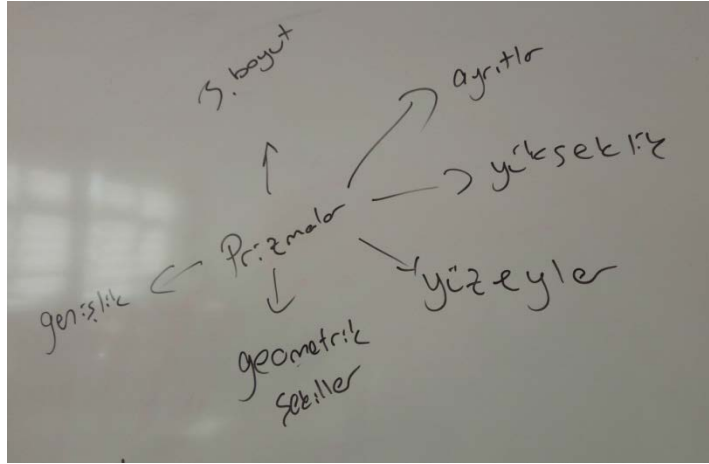 3. boyut
ayrıtlar
yükseklik
Prizmalar
yüzeyler
genişlik
geometrik
şekiller